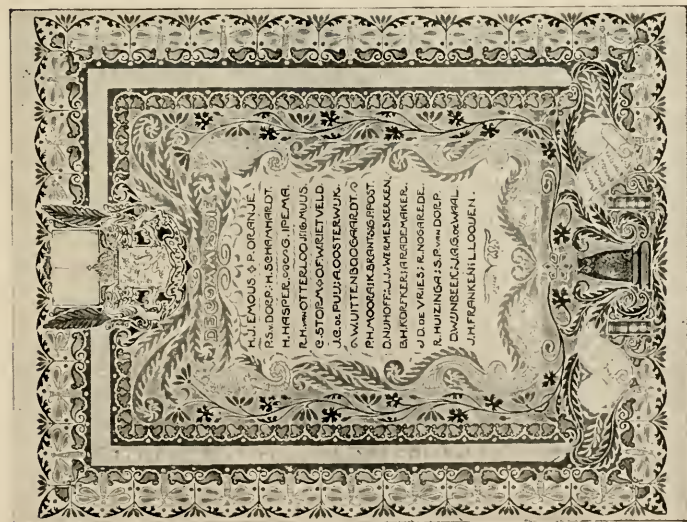 DE COMMISSIE
H.J. EMOUS P. ORANJE.
P.S. v. DORP: H. SCHAMHARDT.
H. HASPER. G. IPEMA.
R.H. VAN OTTERLOO J. HUG. MUUS.
C. STORM F. W. RIETVELD.
J.G. DE PUU: A. OOSTERWIJK.
G.W. UITTENBOOGAARDT.
P.H. MOORA: K. BRANTS: G. P. POST.
D. NIJHOFF: L.J. v. WERMESKERKEN.
B.H. KORFKER: J. A. RADEMAKER.
J.D. DE VRIES: R. NOGAREDE.
R. HUIZINGA: S.P. VAN DORP.
D. WIJNBEEK: J.A.G. DE WAAL.
J.H. FRANKEN: I.L. LOOIJEN.